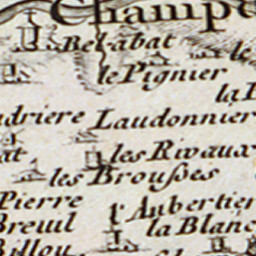 Champ
Bel-abat le
le Pignier
la
udriere Laudonnier
at les Rivaux
les Broußes
Pierre l'Aubertier
Breuil la Blanc
Billou